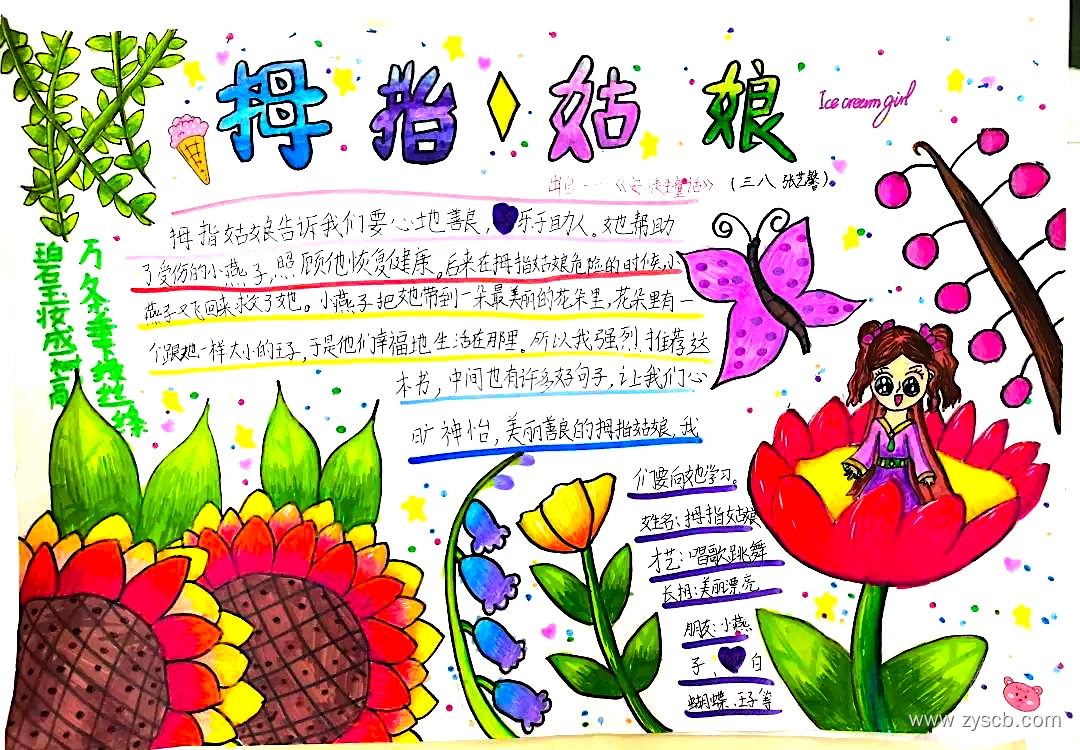 拇指姑娘
Ice cream girl
出自----《安徒生童话》(三八 张艺馨)
拇指姑娘告诉我们要心地善良,乐于助人。她帮助
了受伤的小燕子,照顾他恢复健康。后来在拇指姑娘危险的时候,小
燕子又飞回来救了她。小燕子把她带到一朵最美丽的花朵里,花朵里有一
个跟她一样大小的王子,于是他们幸福地生活在那里。所以我强烈推荐这
本书,中间也有许多好句子,让我们心
旷神怡,美丽善良的拇指姑娘,我
们要向她学习。
姓名:拇指姑娘
才艺:唱歌跳舞
长相:美丽漂亮
朋友:小燕
子、白
蝴蝶、王子等
碧玉妆成树高
万条垂下绿丝绦
www.zyscb.com